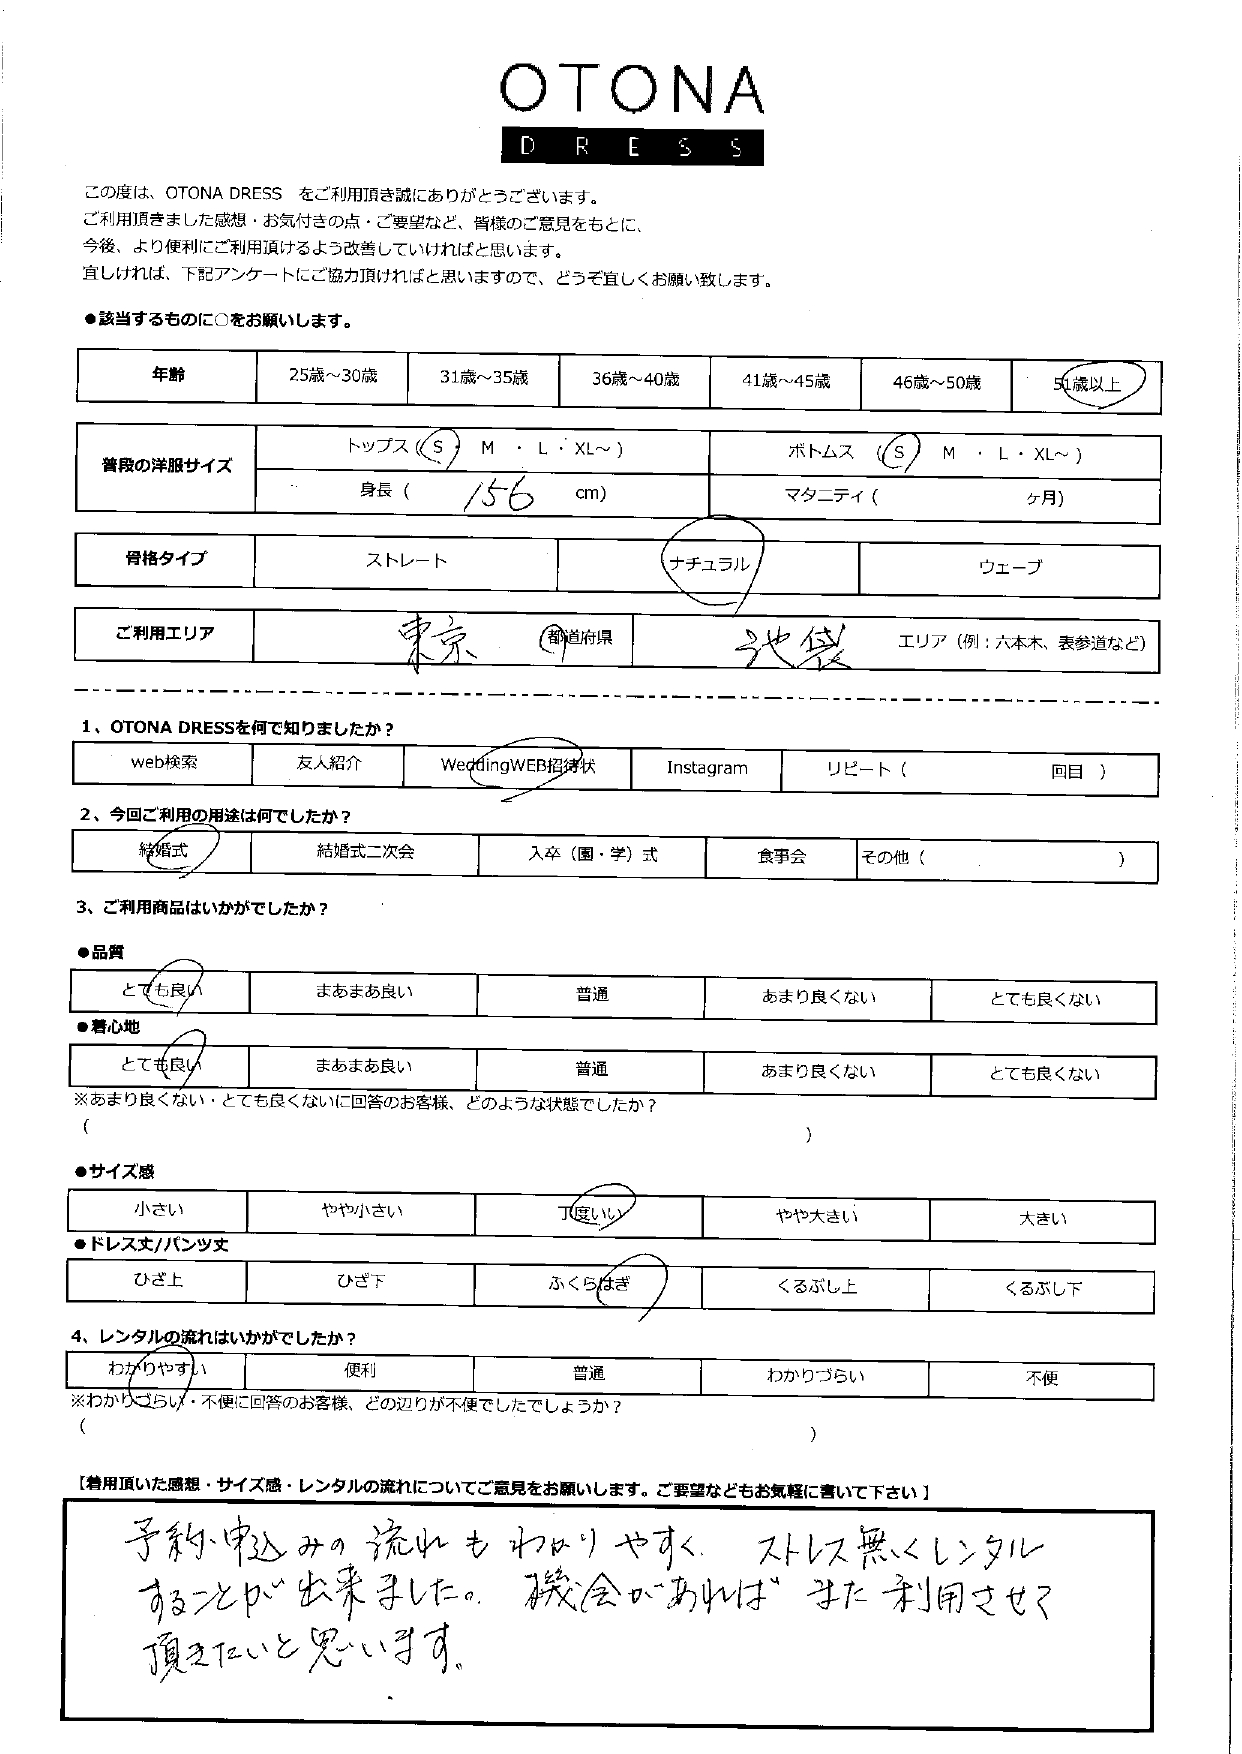 OTONA
DRESS
この度は、OTONA DRESS をご利用頂き誠にありがとうございます。
ご利用頂きました感想・お気付きの点・ご要望など、皆様のご意見をもとに、
今後、より便利にご利用頂けるよう改善していければと思います。
宜しければ、下記アンケートにご協力頂ければと思いますので、どうぞ宜しくお願い致します。
●該当するものに○をお願いします。
年齢 25歳～30歳 31歳～35歳 36歳～40歳 41歳～45歳 46歳～50歳 51歳以上
普段の洋服サイズ トップス（S M ・ L ・ XL～） ボトムス （S M ・ L ・ XL～）
身長（ 156 cm） マタニティ（ ヶ月）
骨格タイプ ストレート ナチュラル ウェーブ
ご利用エリア 東京 都道府県 池袋 エリア（例：六本木、表参道など）
1、OTONA DRESSを何で知りましたか？
web検索 友人紹介 WeddingWEB招待状 Instagram リピート（ 回目 ）
2、今回ご利用の用途は何でしたか？
結婚式 結婚式二次会 入卒（園・学）式 食事会 その他（ ）
3、ご利用商品はいかがでしたか？
●品質
とても良い まあまあ良い 普通 あまり良くない とても良くない
●着心地
とても良い まあまあ良い 普通 あまり良くない とても良くない
※あまり良くない・とても良くないに回答のお客様、どのような状態でしたか？
（ ）
●サイズ感
小さい やや小さい 丁度いい やや大きい 大きい
●ドレス丈/パンツ丈
ひざ上 ひざ下 ふくらはぎ くるぶし上 くるぶし下
4、レンタルの流れはいかがでしたか？
わかりやすい 便利 普通 わかりづらい 不便
※わかりづらい・不便に回答のお客様、どの辺りが不便でしたでしょうか？
（ ）
【着用頂いた感想・サイズ感・レンタルの流れについてご意見をお願いします。ご要望などもお気軽に書いて下さい】
予約・申込みの流れもわかりやすく、ストレス無くレンタル
することが出来ました。機会があればまた利用させて
頂きたいと思います。